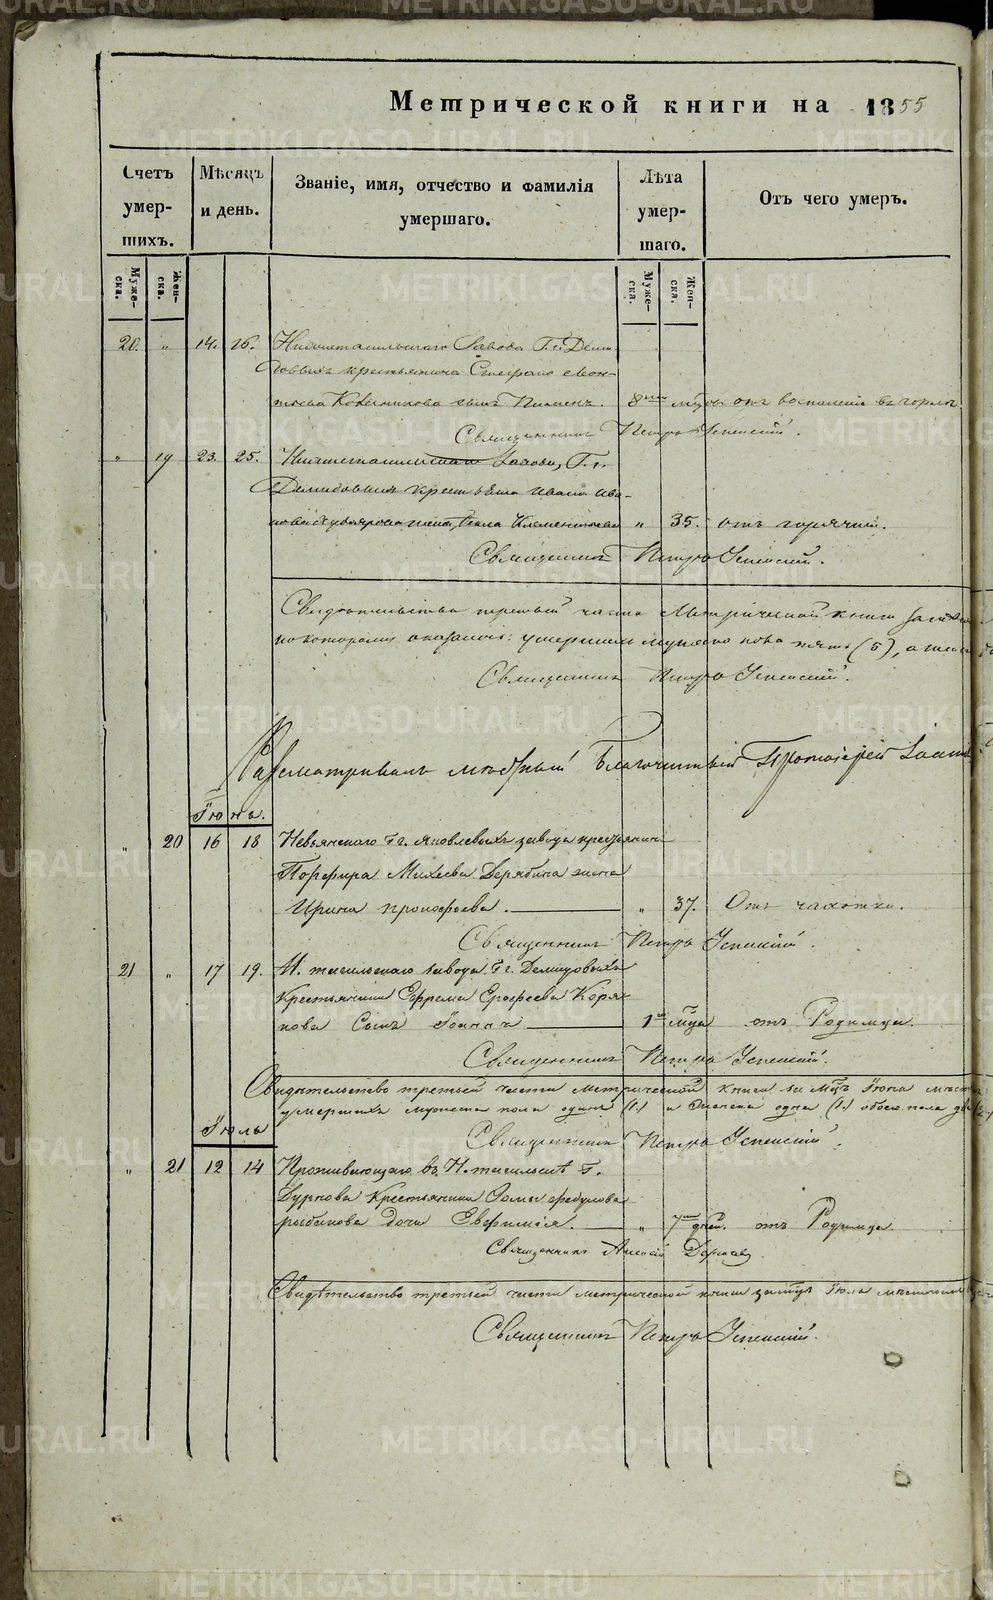 Метрической книги на 1855
Счетъ умер- шихъ.
Мѣсяцъ и день.
Званіе, имя, отчество и фамилія умершаго.
Лѣта умер- шаго.
Отъ чего умеръ.
Муже- ска.
Жен- ска.
Муже- ска.
Жен- ска.
20. „ 14. 16. Нижнетагильскаго Завода Г.г. Деми
довыхъ крестьянина Стефана Леон-
тьева сынъ Пименъ. 8 мцовъ отъ воспаленія въ горлѣ
Священникъ Петръ Успенскій.
„ 19 23. 25. Нижнетагильскаго Завода, Г.г.
Демидовыхъ крестьянина Ивана Ива-
нова жена, Фекла Климентьева „ 35. отъ горячки.
Священникъ Петръ Успенскій.
Свидѣтельство третьей части Метрической книги за
по которому оказалось: умершихъ мужеска пола пять (5), а женска
Священникъ Петръ Успенскій.
Разсматривалъ Благочинный Протоіерей Іоаннъ
Іюнь.
„ 20 16 18 Невьянскаго Гг. Яковлевыхъ завода крестьянина
Порфира Михеева Дерябина жена
Ирина прокофьева. „ 37. Отъ чахотки.
Священникъ Петръ Успенскій.
21 „ 17 19. Н. тагильскаго завода Гг. Демидовыхъ
Крестьянина Ефрема Ерофеева Коря-
кова Сынъ Іоаннъ 1 мца отъ Родимца.
Священникъ Петръ Успенскій.
Свидѣтельство третьей части метрической книги за Мцъ Іюнь
умершихъ мужеска пола одинъ (1.) и Женска одна (1.) обоего пола два (2.)
Священникъ Петръ Успенскій.
Іюль
„ 21 12 14 Проживающаго въ Н. тагильскѣ Г.
Дурнова Крестьянина Ѳомы
дочь Евфимія. „ 7 дней. отъ Родимца.
Священникъ Алексій
Свидѣтельство третьей части метрической книги за мцъ Іюль
Священникъ Петръ Успенскій.
METRIKI.GASO-URAL.RU